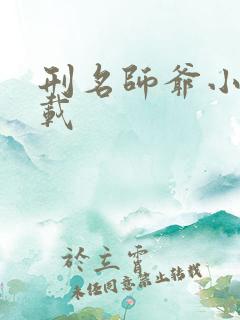 刑名師爺小
載
於立霄
未经同意禁止转载